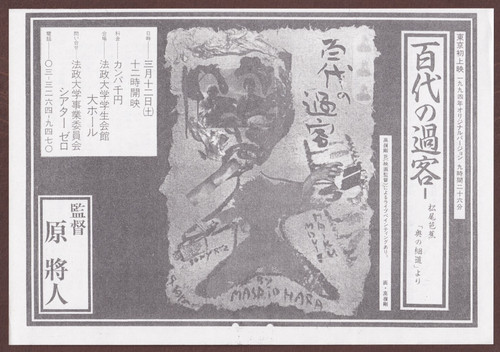 東京初上映 一九九四年オリジナルバージョン 九時間二十六分
百代の過客ー
松尾芭蕉
『奥の細道』より
百代の過客
HAIKU
MOVIE
BY
MASATO HARA
日時・
三月十二日(土)
十二時開映
料金・
カンパ千円
会場・
法政大学学生会館
大ホール
問い合せ・
法政大学事業委員会
シアターゼロ
電話・
〇三ー三二六四ー九四七〇
監督
原 將人